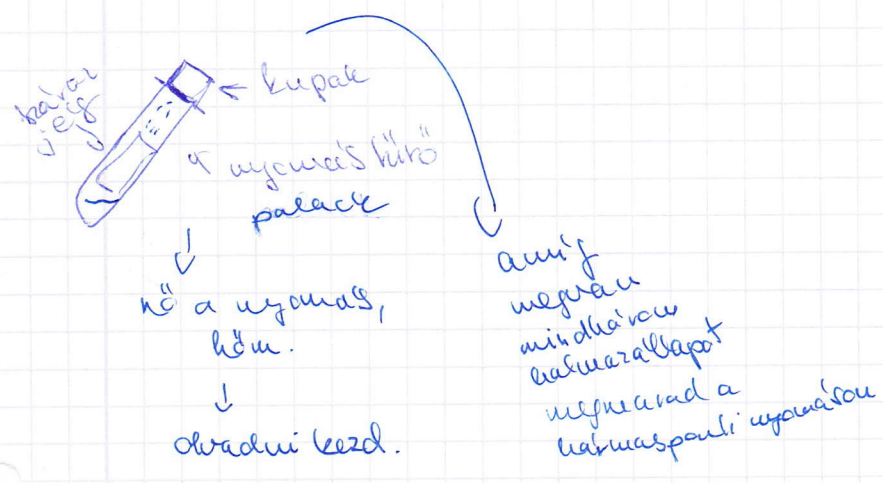 száraz
jég
kupak
nyomástűrő
palack
nő a nyomás,
hőm.
olvadni kezd.
amíg
megvan
mindhárom
halmazállapot
megmarad a
hármasponti nyomáson